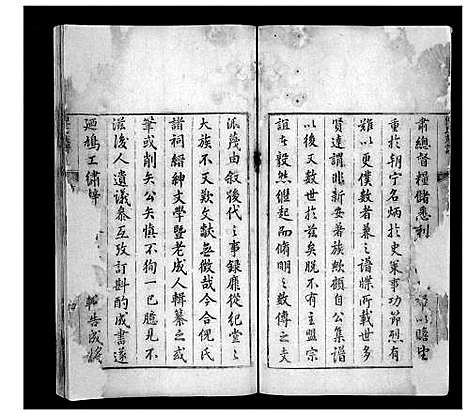 肅總督糧儲悉利
重於朝宁名炳於史策事功節烈有
難以更僕數者墓之譜牒所載世多
賢達謂非新安著族歟顧自公集譜
以後又數世於玆矣脫不有主盟宗
誼在毅然繼起而脩明之數傳之支
派蔑由叙後代之事録靡從紀堂
大族不又歎文獻無徵哉今合倪氏
譜祠縉紳文學暨老成人輯纂之或
筆或削矣公矣慎不狥一己臆見不
滋後人遺議叅互攷訂斟酌成書遂
廼鳩工繡梓 報告成